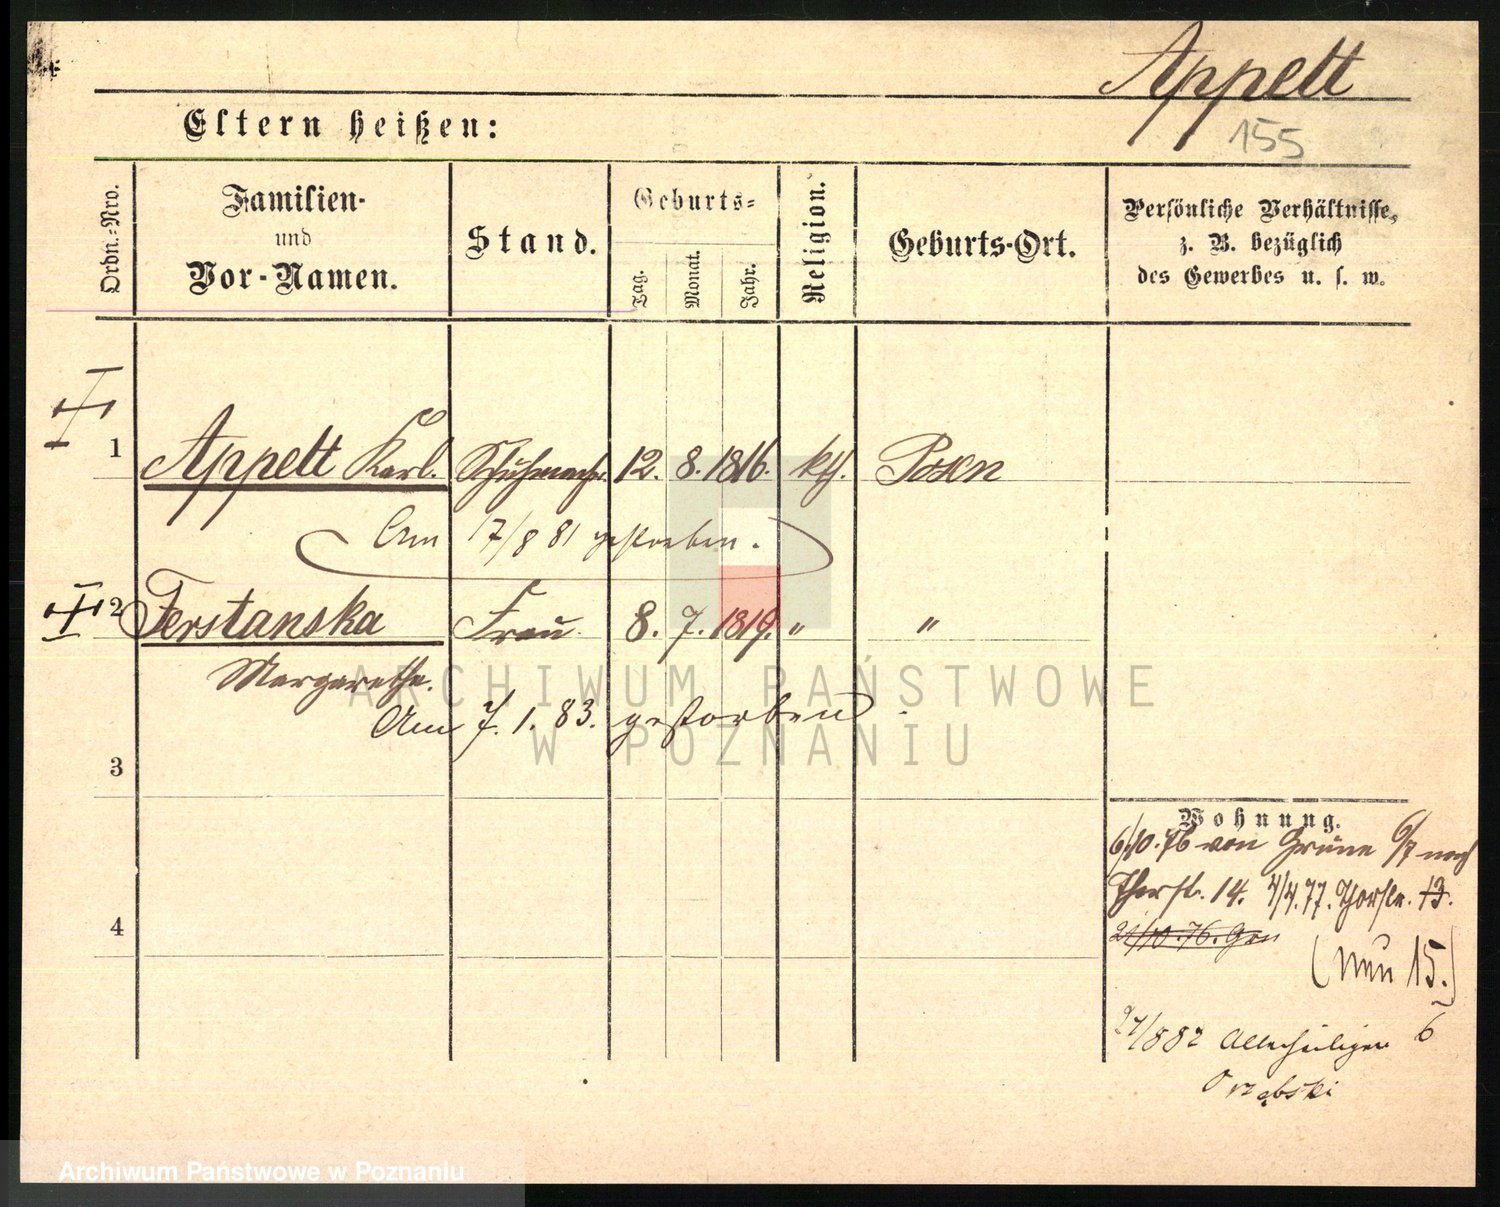 Appelt
155
Eltern heißen:
Ordn.-Nro.
Familien-
und
Vor-Namen.
Stand.
Geburts-
Tag.
Monat.
Jahr.
Religion.
Geburts-Ort.
Persönliche Verhältnisse,
z. B. bezüglich
des Gewerbes u. s. w.
1 Appelt Karl. Schuhmacher 12. 8. 1816. kth. Posen
Am 17/8 81 gestorben.
2 Ferstanska Frau 8. 7. 1819. " "
Margarethe.
Am 7. 1. 83. gestorben.
ARCHIWUM PAŃSTWOWE
W POZNANIU
3
Wohnung.
6/10.76 von Grüne 6/7 nach
Thorstr. 14. 4/4.77. Thorstr. 13.
4
21/10.76. Grn
(nun 15.)
27/882 Allerheiligen 6
Orzębski
Archiwum Państwowe w Poznaniu